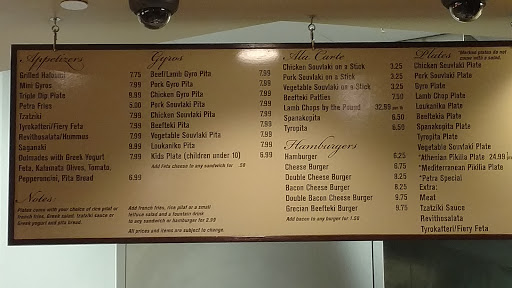 Appetizers
Grilled Haloumi 7.75
Mini Gyros 7.99
Triple Dip Plate 9.99
Petra Fries 5.00
Tzatziki 7.99
Tyrokafteri/Fiery Feta 7.99
Revithosalata/Hummus 7.99
Saganaki 9.99
Dolmades with Greek Yogurt 7.99
Feta, Kalamata Olives, Tomato,
Pepperoncini, Pita Bread 6.99
Notes:
Plates come with your choice of rice pilaf or
french fries, Greek salad, tzatziki sauce or
Greek yogurt and pita bread.
Gyros
Beef/Lamb Gyro Pita 7.99
Pork Gyro Pita 7.99
Chicken Gyro Pita 7.99
Pork Souvlaki Pita 7.99
Chicken Souvlaki Pita 7.99
Beefteki Pita 7.99
Vegetable Souvlaki Pita 7.99
Loukaniko Pita 7.99
Kids Plate (children under 10) 6.99
Add feta cheese to any sandwich for .50
Add french fries, rice pilaf or a small
lettuce salad and a fountain drink
to any sandwich or hamburger for 2.99
All prices and items are subject to change.
Ala Carte
Chicken Souvlaki on a Stick 3.25
Pork Souvlaki on a Stick 3.25
Vegetable Souvlaki on a Stick 3.25
Beefteki Patties 7.50
Lamb Chops by the Pound 32.99
Spanakopita 6.50
Tyropita 6.50
Hamburgers
Hamburger 6.25
Cheese Burger 6.75
Double Cheese Burger 9.25
Bacon Cheese Burger 8.25
Double Bacon Cheese Burger 9.75
Grecian Beefteki Burger 9.75
Add bacon to any burger for 1.50
Plates
*Marked plates do not
come with a salad.
Chicken Souvlaki Plate
Pork Souvlaki Plate
Gyro Plate
Lamb Chop Plate
Loukaniko Plate
Beeftekia Plate
Spanakopita Plate
Tyropita Plate
Vegetable Souvlaki Plate
*Athenian Pikilia Plate 24.99
*Mediterranean Pikilia Plate
*Petra Special
Extra:
Meat
Tzatziki Sauce
Revithosalata
Tyrokafteri/Fiery Feta